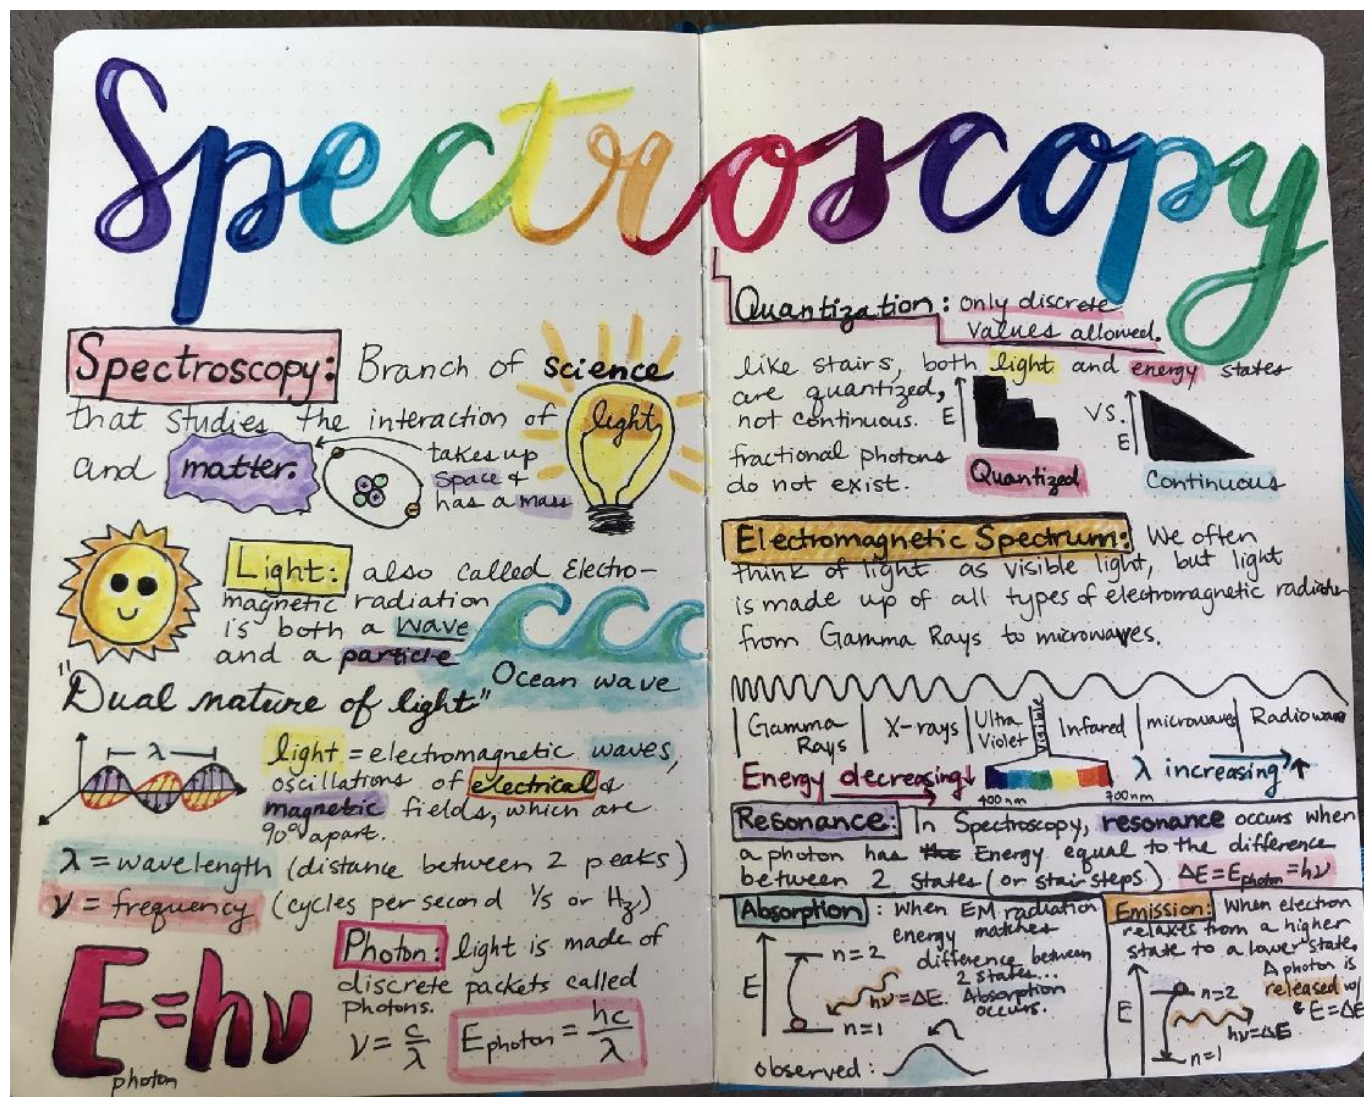 Spectroscopy
Spectroscopy: Branch of science
that studies the interaction of light
and matter.
takes up
space &
has a mass
Light: also called Electro-
magnetic radiation
is both a wave
and a particle
Ocean wave
"Dual nature of light"
λ
light = electromagnetic waves,
oscillations of electrical &
magnetic fields, which are
90° apart.
λ = wavelength (distance between 2 peaks)
ν = frequency (cycles per second 1/s or Hz)
E photon = hν
Photon: light is made of
discrete packets called
photons.
ν = c/λ
E photon = hc/λ
Quantization: only discrete
values allowed.
like stairs, both light and energy states
are quantized,
not continuous.
fractional photons
do not exist.
E
Quantized
VS.
E
Continuous
Electromagnetic Spectrum: We often
think of light as visible light, but light
is made up of all types of electromagnetic radiation
from Gamma Rays to microwaves.
Gamma Rays
X-rays
Ultra Violet
Visible
Infared
microwaves
Radiowave
Energy decreasing↓
400nm
700nm
λ increasing ↑
Resonance: In Spectroscopy, resonance occurs when
a photon has the Energy equal to the difference
between 2 states (or stair steps) ΔE = E photon = hν
Absorption: When EM radiation
energy matches
difference between
2 states...
Absorption
occurs.
E
n=2
hν=ΔE
n=1
observed:
Emission: When electron
relaxes from a higher
state to a lower state.
A photon is
released w/
E=ΔE
E
n=2
hν=ΔE
n=1